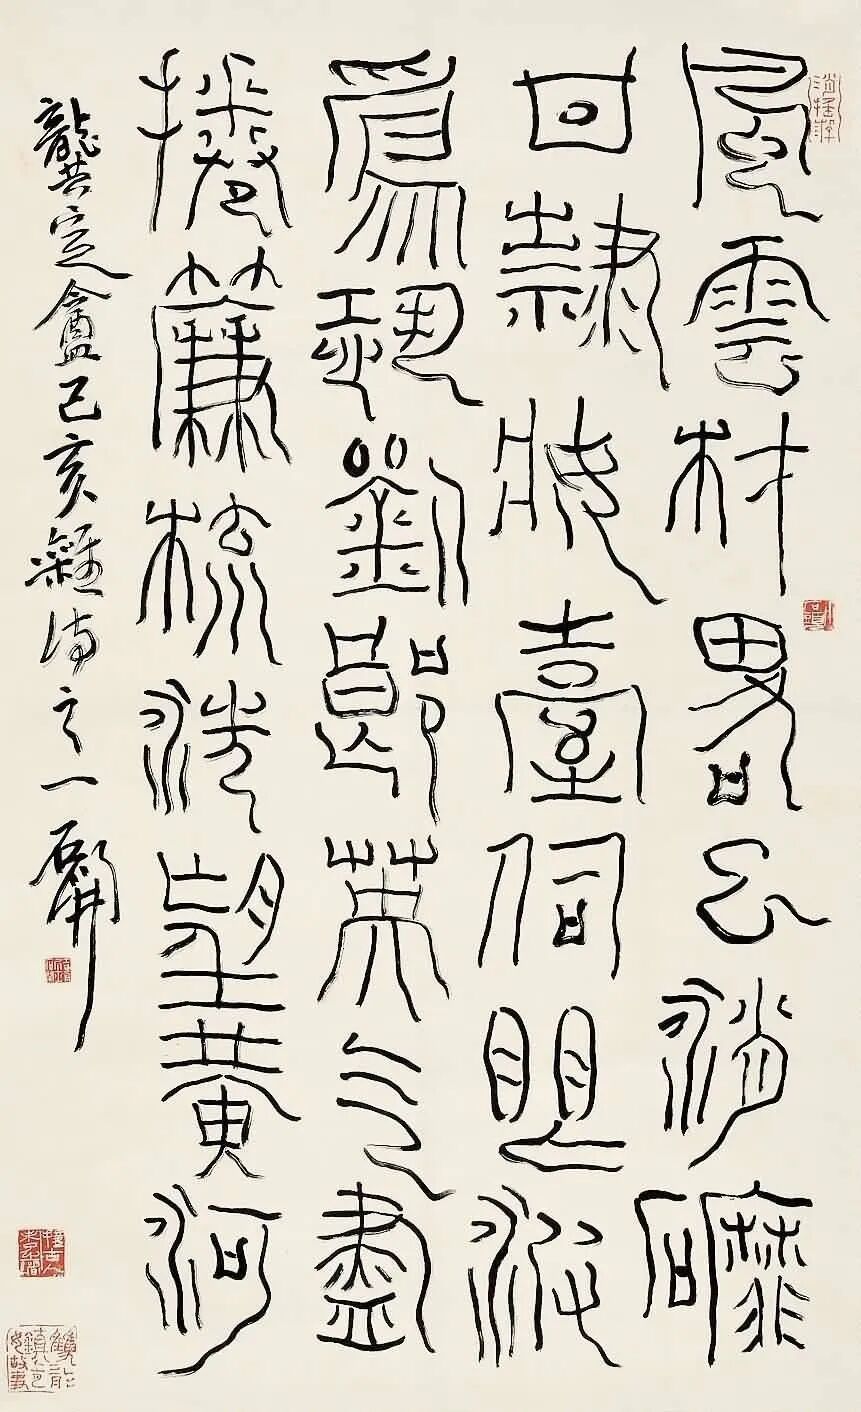 風雲材畧已消磨
甘隸妝臺伺眼波
為恐劉郎英气盡
捲簾梳洗望黃河
龔定盦己亥雜詩之一 石開